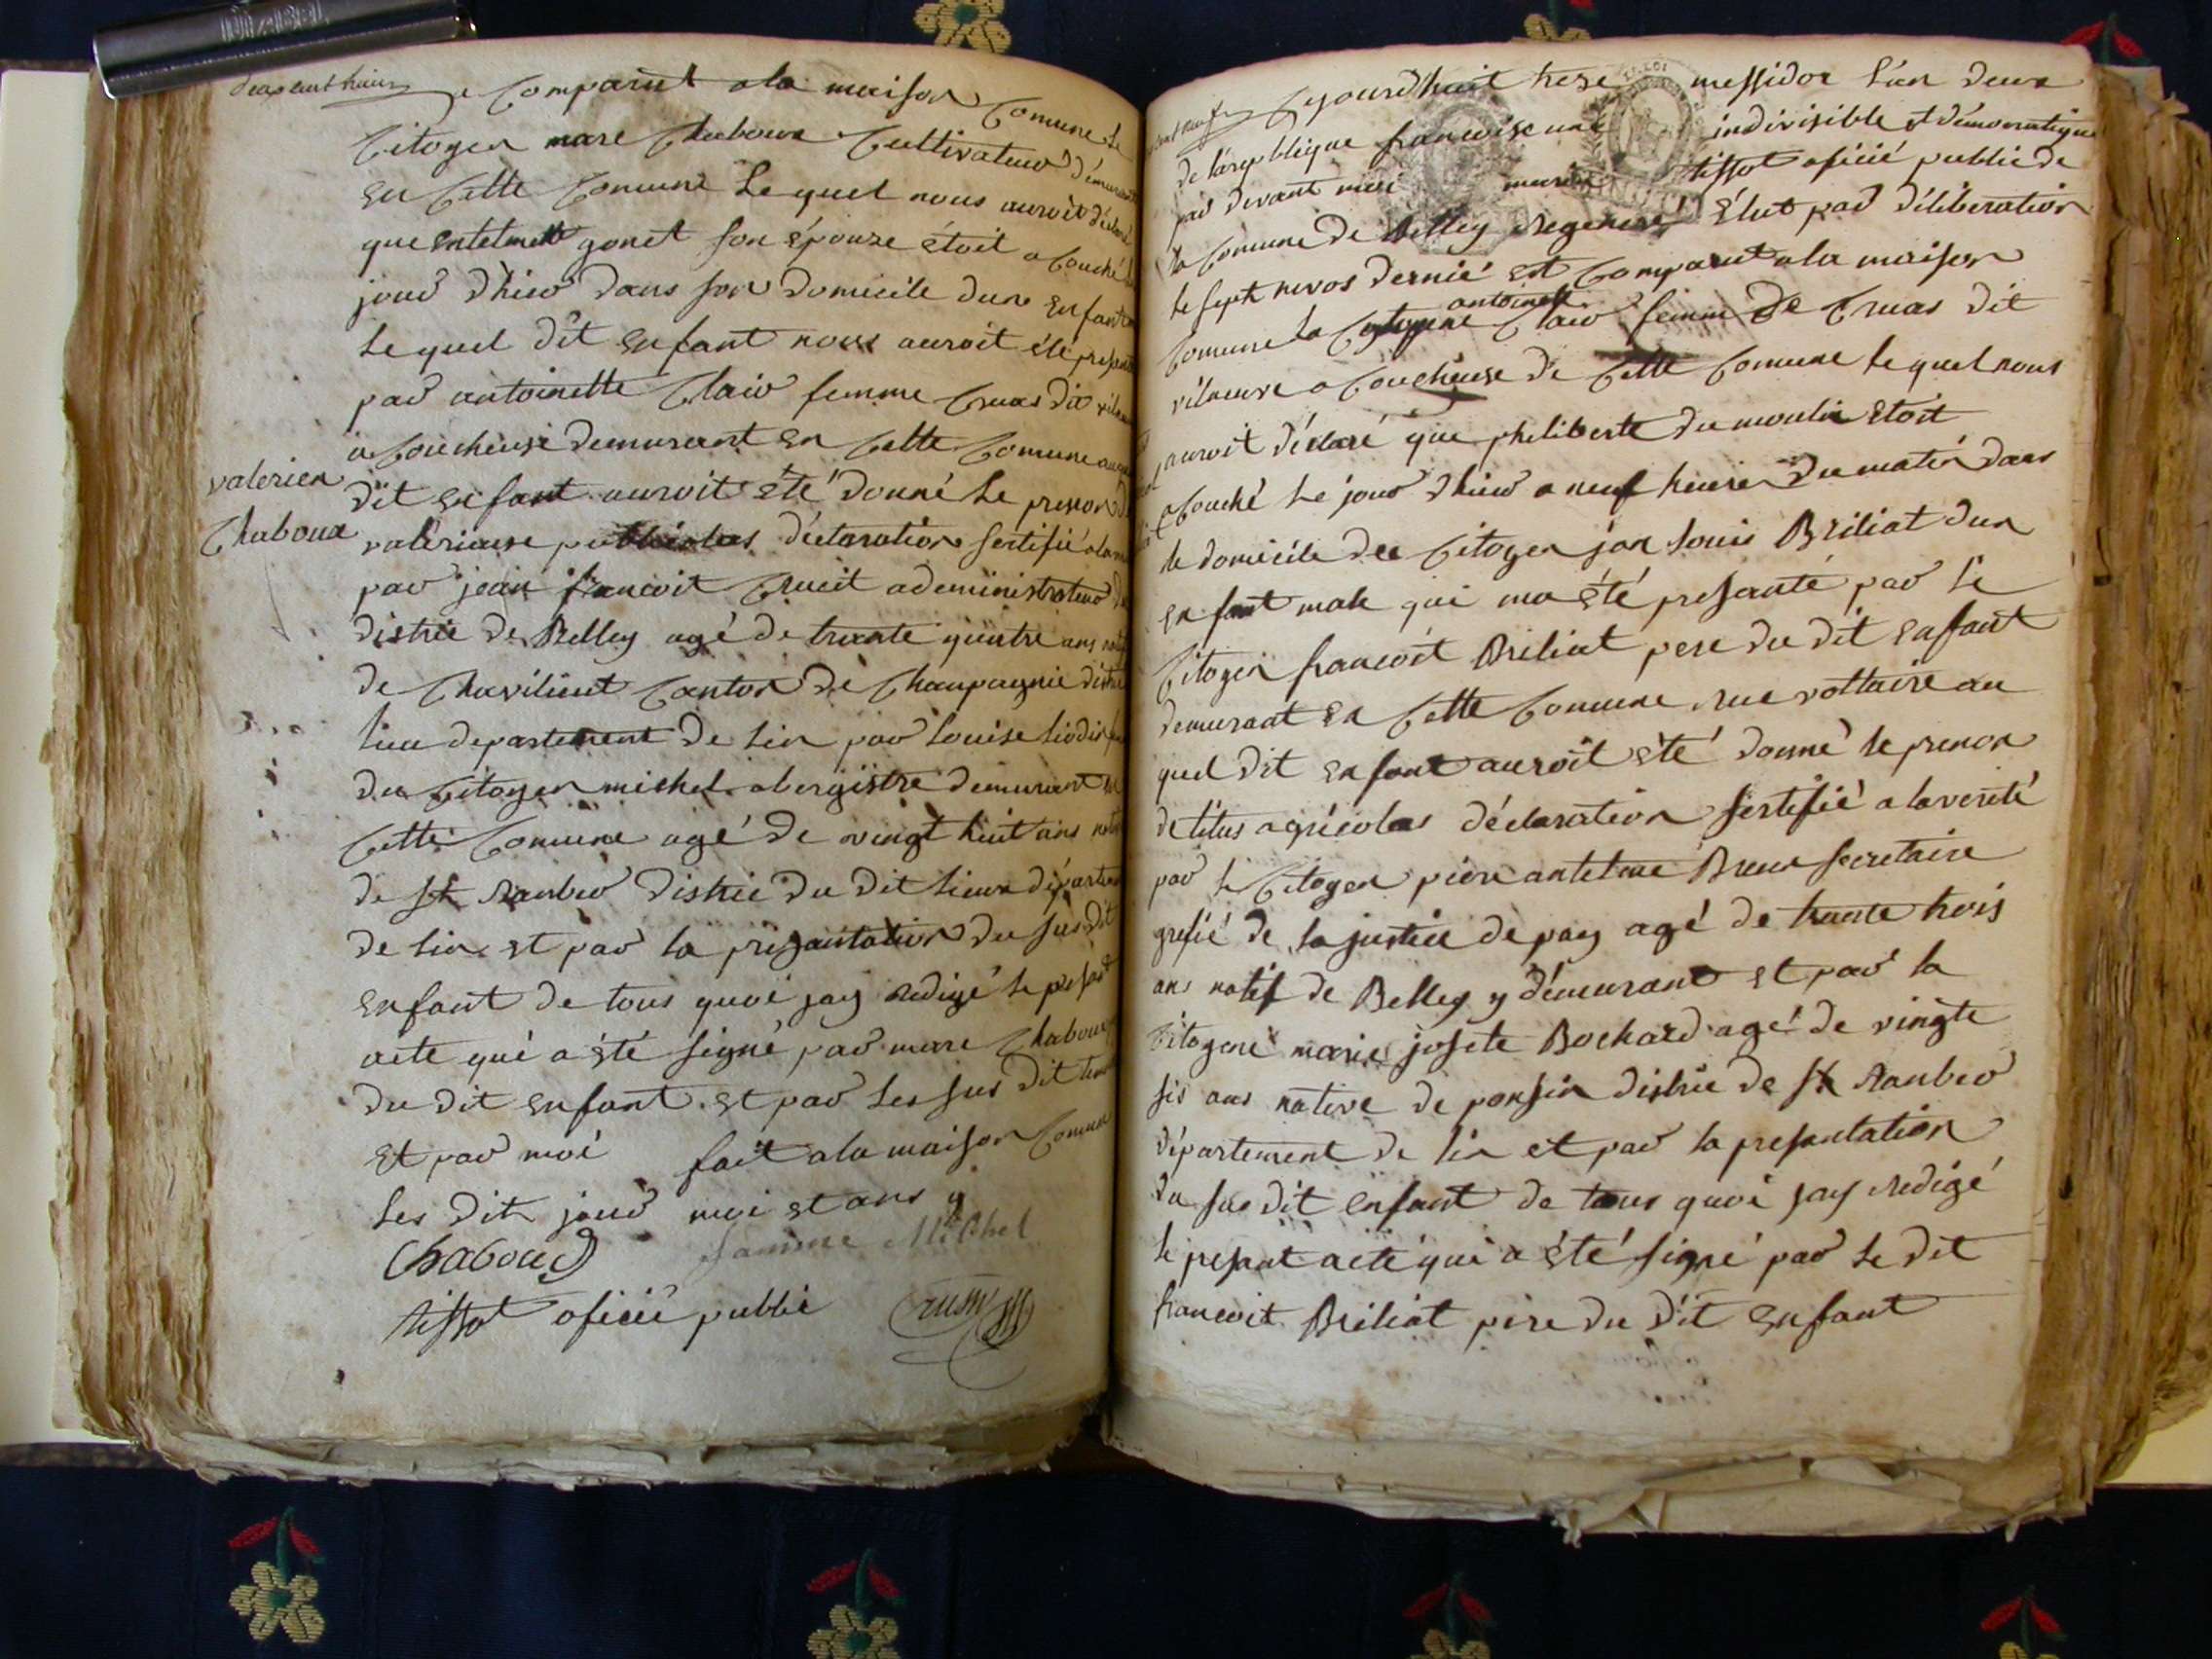 MABEL
deux cent huit
Comparut a la maison Comune le
Citoyen marc Chaboux Cultivateur
en Cette Comune Le quel nous auroit
que gonet son épouze étoit acouché
jour dhier dans son domicile dun enfant
Le quel dit enfant nous auroit été
par antoinette Claiv femme Cruas dit
acoucheuse demurant en Cette Comune
valerien
dit enfant auroit été donné Le prenon
Chaboux
publicolas déclaration sertifié
par jean francoit administrateur
district de Belley agé de trante quatre ans
de Chavilieut Canton de Champagnie
lieu departement de lin par Louise
du Citoyen michel abergistre demurant
Cette Comune agé de vingt huit ans
de St Ranber distric du dit lieux
de lin et par la du sus dit
enfant de tous quoi jay redigé le
acte qui a été signé par marc Chaboux
du dit enfant et par les sus dit
et par moi fait a la maison Comune
Les dit jour moi et ans
Chaboud famme Michel
tissot oficié public
Cejourdhuit treze messidor L'an deux
de la republique francoise une indivisible et démocratique
par devant moi tissot oficié public de
la Comune de Belley Regeneré élut par déliberation
le sept nivos dernié est Comparut a la maison
antoinette
Comune la Citoyene Claiv femme de Cruas dit
acoucheuse de Cette Comune le quel nous
auroit déclaré que philiberte du moulin étoit
acouché le jour dhier a neuf heure du matin dans
le domicile du Citoyen jan louis Briliat dun
enfant male qui ma été presanté par le
Citoyen francoit Briliat pere du dit enfant
demurant en Cette Comune rue voltaire au
quel dit enfant auroit été donné le prenon
de titus agricolas déclaration sertifié a la verité
par le Citoyen piere antelme secretaire
grefié de la justice de pay agé de trante trois
ans natif de Belley y démurant et par la
Citoyene marie josete Bochard agé de vingte
sis ans native de ponsin distric de St Ranber
département de lin et par la presantation
du sus dit enfant de tous quoi jay redigé
le presant acte qui a été signé par le dit
francoit Briliat pere du dit enfant